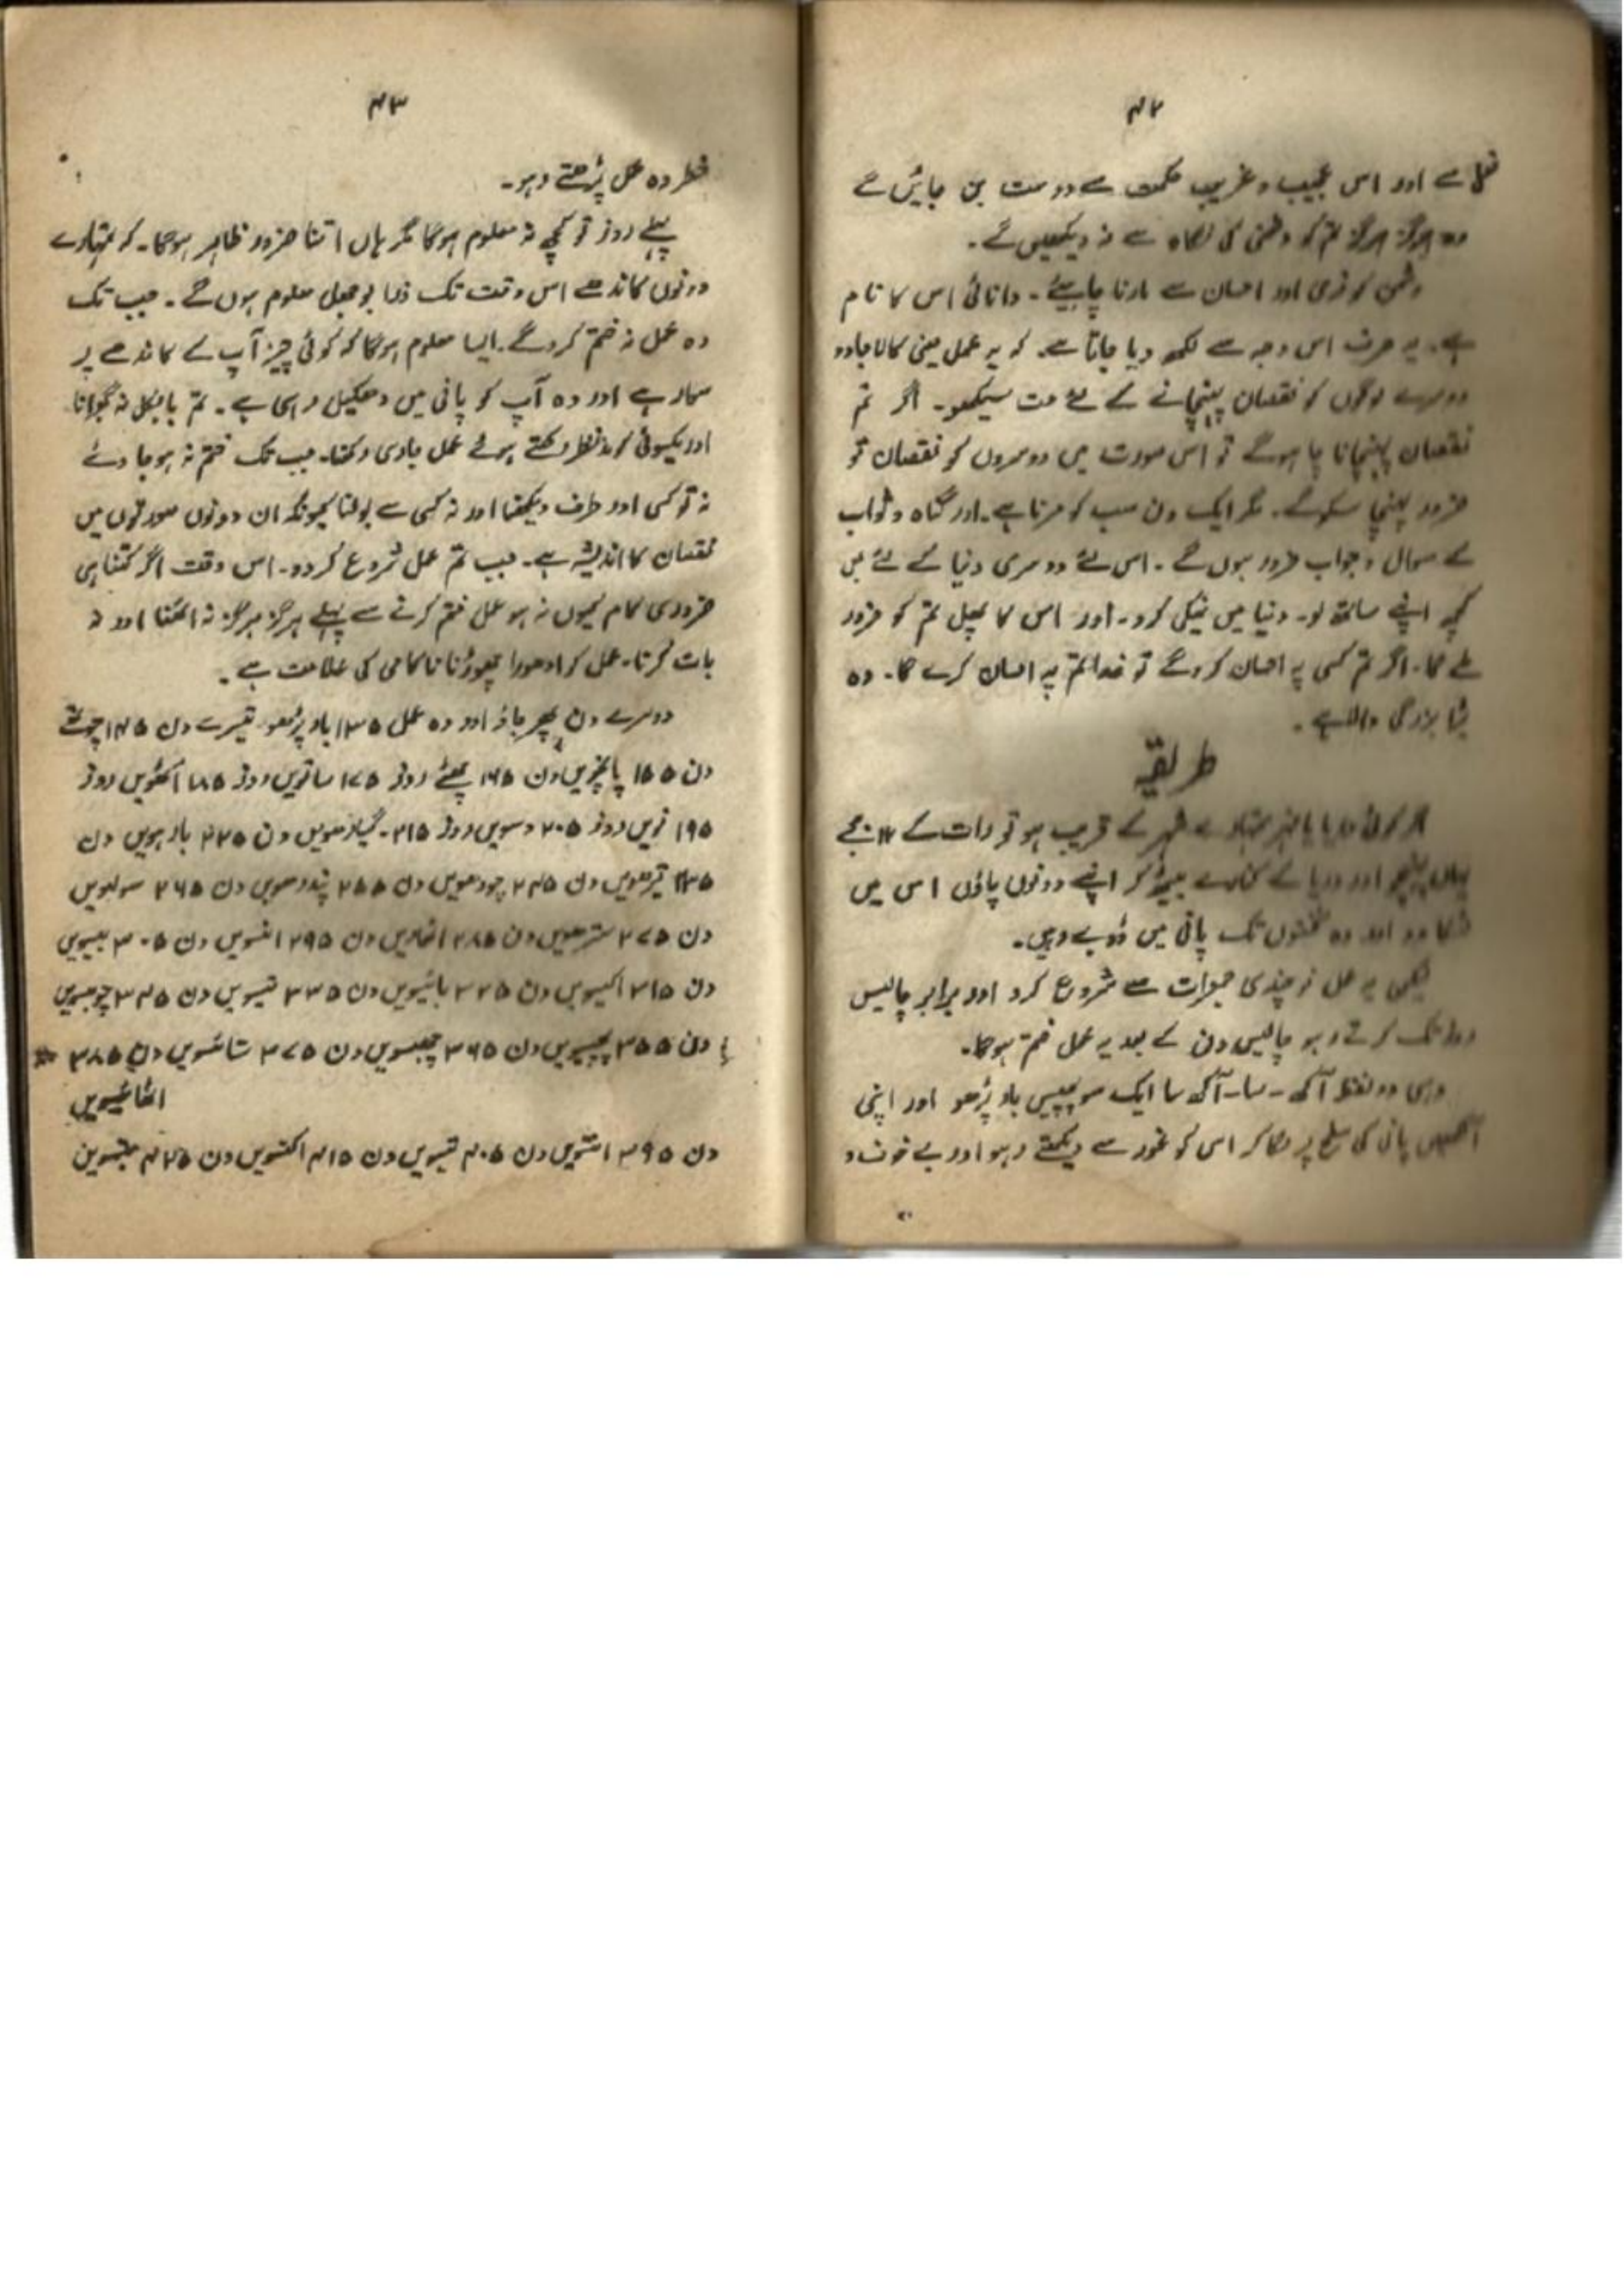 ۴۲
سے اور اس عجیب و غریب حکمت سے دوست بن جائیں گے
وہ ہرگز ہرگز تم کو دشمنی کی نگاہ سے نہ دیکھیں گے۔
دشمن کو نرمی اور احسان سے مارنا چاہیئے۔ دانائی اس کا نام
ہے۔ یہ صرف اس وجہ سے لکھ دیا جاتا ہے۔ کہ یہ عمل یعنی کالا جادو
دوسرے لوگوں کو نقصان پہنچانے کے لئے مت سیکھو۔ اگر تم
نقصان پہنچانا چاہوگے تو اس صورت میں دوسروں کو نقصان تو
ضرور پہنچا سکوگے۔ مگر ایک دن سب کو مرنا ہے۔ اور گناہ و ثواب
کے سوال و جواب ضرور ہوں گے۔ اس لئے دوسری دنیا کے لئے بھی
کچھ اپنے ساتھ لو۔ دنیا میں نیکی کرو۔ اور اس کا پھل تم کو ضرور
ملے گا۔ اگر تم کسی پہ احسان کروگے تو خدا تم پہ احسان کرے گا۔ وہ
بڑا بزرگی والا ہے۔
طریقہ
اگر کوئی دریا یا نہر تمہارے شہر کے قریب ہو تو رات کے ۱۲ بجے
وہاں پہنچو اور دریا کے کنارے بیٹھ کر اپنے دونوں پاؤں اس میں
لٹکا دو اور وہ گھٹنوں تک پانی میں ڈوبے رہیں۔
لیکن یہ عمل نوچندی جمعرات سے شروع کرو اور برابر چالیس
روز تک کرتے رہو چالیس دن کے بعد یہ عمل ختم ہوگا۔
وہی دو لفظ آگھ۔سا۔آگھ سا ایک سو پچیس بار پڑھو اور اپنی
آنکھیں پانی کی سطح پر لگا کر اس کو غور سے دیکھتے رہو اور بے خوف و
۴۳
خطر وہ عمل پڑھتے رہو۔
پہلے روز تو کچھ نہ معلوم ہوگا مگر ہاں اتنا ضرور ظاہر ہوگا۔ کہ تمہارے
دونوں کاندھے اس وقت تک ذرا بوجھل معلوم ہوں گے۔ جب تک
وہ عمل نہ ختم کروگے۔ ایسا معلوم ہوگا کہ کوئی چیز آپ کے کاندھے پر
سوار ہے اور وہ آپ کو پانی میں دھکیل رہی ہے۔ تم بالکل نہ گھبرانا
اور یکسوئی کو مدنظر رکھتے ہوئے عمل جاری رکھنا۔ جب تک ختم نہ ہو جاوئے
نہ تو کسی اور طرف دیکھنا اور نہ کسی سے بولنا کیونکہ ان دونوں صورتوں میں
نقصان کا اندیشہ ہے۔ جب تم عمل شروع کردو۔ اس وقت اگر کتنا ہی
ضروری کام کیوں نہ ہو عمل ختم کرنے سے پہلے ہرگز ہرگز نہ اٹھنا اور نہ
بات کرنا۔ عمل کو ادھورا چھوڑنا ناکامی کی علامت ہے۔
دوسرے دن پھر جاؤ اور وہ عمل ۱۳۵ بار پڑھو۔ تیسرے دن ۱۴۵ چوتھے
دن ۱۵۵ پانچویں دن ۱۶۵ چھٹے روز ۱۷۵ ساتویں روز ۱۸۵ آٹھویں روز
۱۹۵ نویں روز ۲۰۵ دسویں روز ۲۱۵۔ گیارھویں دن ۲۲۵ بارہویں دن
۲۳۵ تیرھویں دن ۲۴۵ چودھویں دن ۲۵۵ پندرھویں دن ۲۶۵ سولہویں
دن ۲۷۵ سترھویں دن ۲۸۵ اٹھارویں دن ۲۹۵ انیسویں دن ۳۰۵ بیسویں
دن ۳۱۵ اکیسویں دن ۳۲۵ بائیسویں دن ۳۳۵ تئیسویں دن ۳۴۵ چوبیسویں
دن ۳۵۵ پچیسویں دن ۳۶۵ چھبیسویں دن ۳۷۵ ستائسویں دن ۳۸۵
اٹھائیسویں
دن ۳۹۵ انتیسویں دن ۴۰۵ تیسویں دن ۴۱۵ اکتسویں دن ۴۲۵ بتیسویں